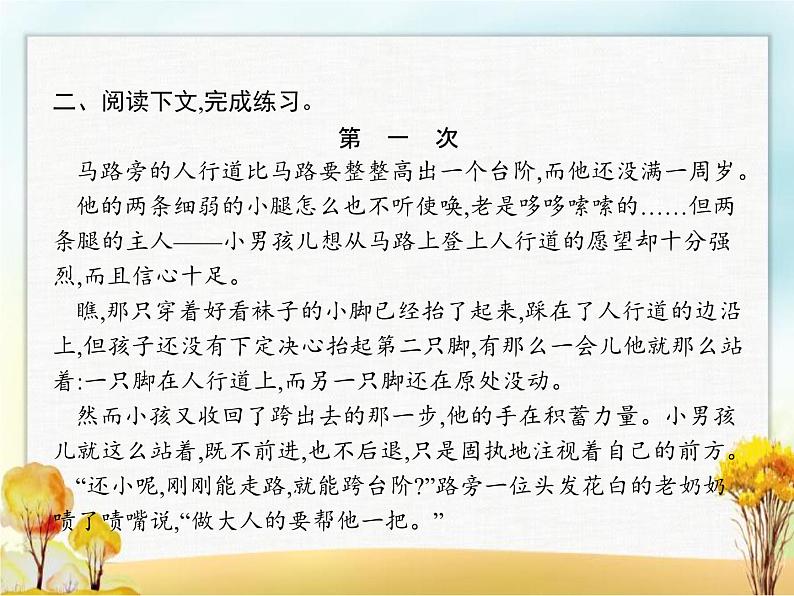 二、阅读下文,完成练习。
第 一 次
马路旁的人行道比马路要整整高出一个台阶,而他还没满一周岁。
他的两条细弱的小腿怎么也不听使唤,老是哆哆嗦嗦的……但两
条腿的主人——小男孩儿想从马路上登上人行道的愿望却十分强
烈,而且信心十足。
瞧,那只穿着好看袜子的小脚已经抬了起来,踩在了人行道的边沿
上,但孩子还没有下定决心抬起第二只脚,有那么一会儿他就那么站
着:一只脚在人行道上,而另一只脚还在原处没动。
然而小孩又收回了跨出去的那一步,他的手在积蓄力量。小男孩
儿就这么站着,既不前进,也不后退,只是固执地注视着自己的前方。
“还小呢,刚刚能走路,就能跨台阶?”路旁一位头发花白的老奶奶
啧了啧嘴说,“做大人的要帮他一把。”